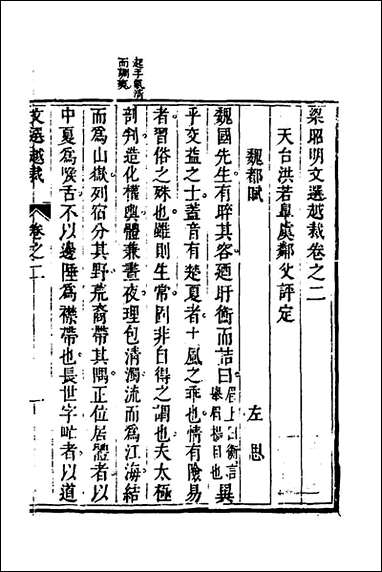 梁昭明文選越裁卷之二
天台洪若臯虞鄰父評定
魏都賦　左思
魏國先生有睟其容廼盱衡而誥曰眉上曰衡言舉眉揚目也異
乎交益之士蓋音有楚夏者土風之乖也情有險易
者習俗之殊也雖則生常固非自得之謂也夫太極
起手氣清
而調
剖判造化權輿體兼晝夜理包清濁流而爲江海結
而爲山嶽列宿分其野荒裔帶其隅正位居體者以
中夏爲喉舌不以邊陲爲襟帶也長世字甿者以道
文選越裁　卷之二　一